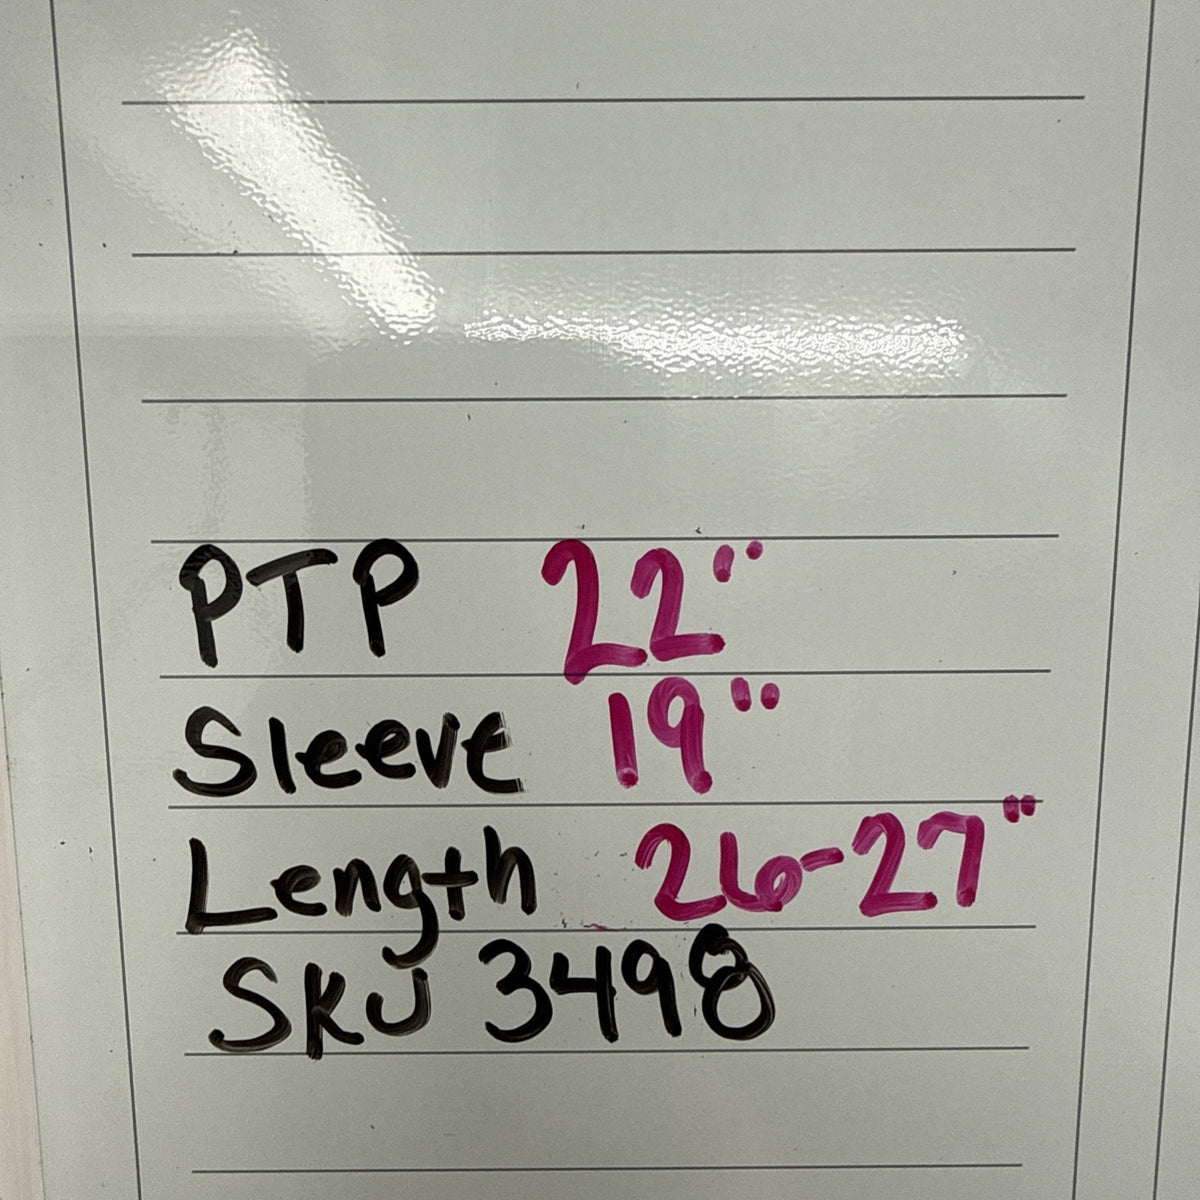 PTP 22"
Sleeve 19"
Length 26-27"
SKU 3498